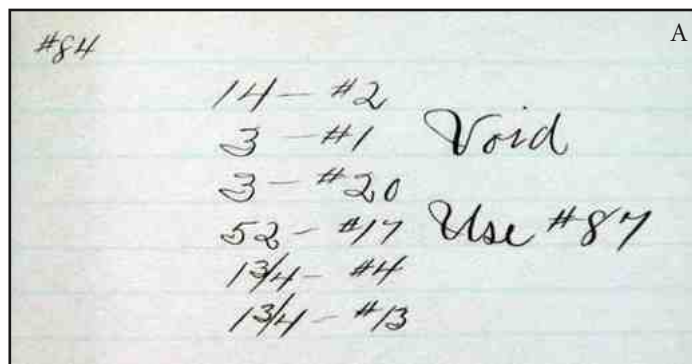 A
#84
14 - #2
3 - #1 Void
3 - #20
52 - #17 Use #87
1 3/4 - #4
1 3/4 - #13